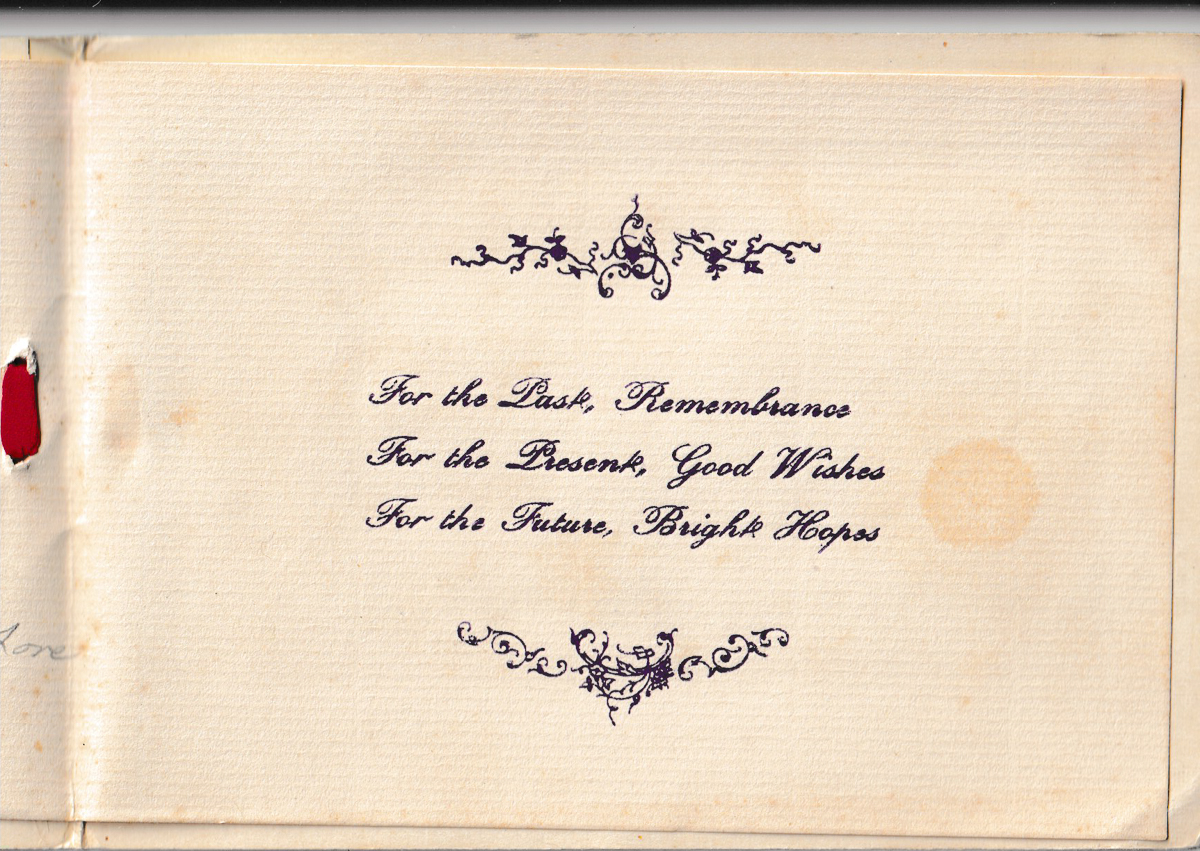 For the Past, Remembrance
For the Present, Good Wishes
For the Future, Bright Hopes